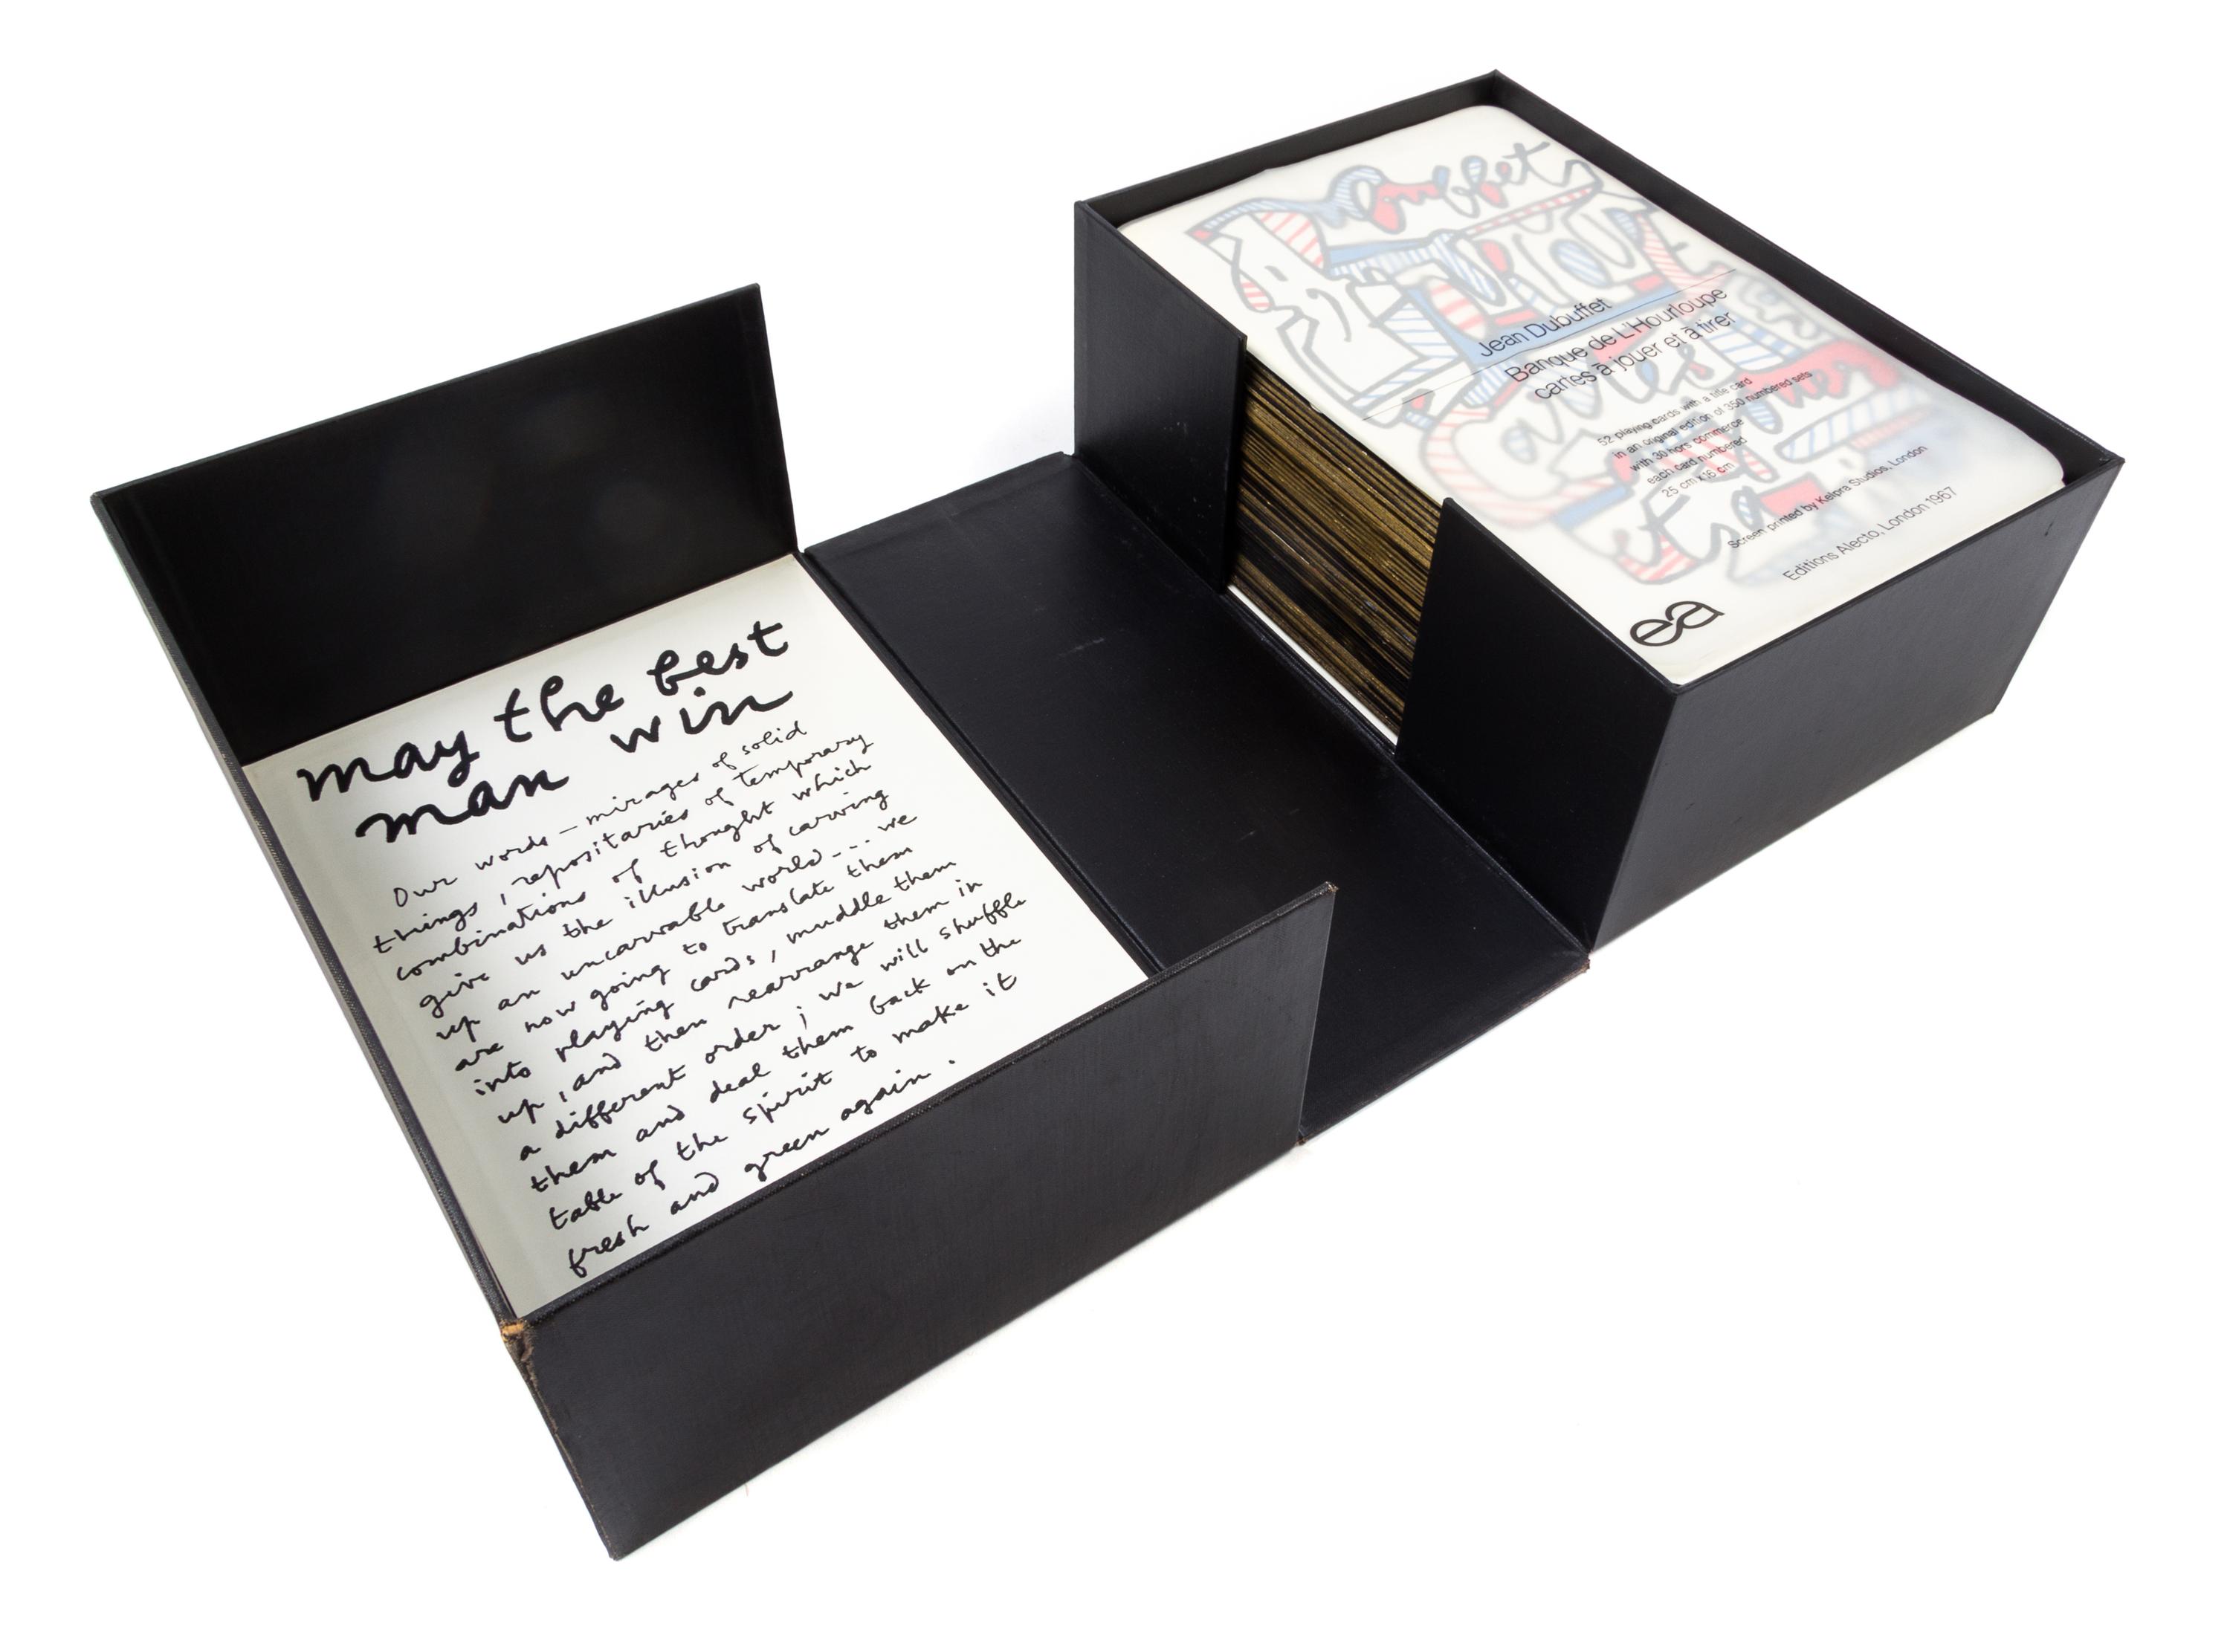 may the best
man win
Our words – mirages of solid
things, repositaries of temporary
combinations of thought which
give us the illusion of carving
up an uncarvable world --- we
are now going to translate them
into playing cards, muddle them
up, and then rearrange them in
a different order; we will shuffle
them and deal them back on the
table of the spirit to make it
fresh and green again.
Jean Dubuffet
Banque de L'Hourloupe
cartes à jouer et à tirer
52 playing cards with a title card
in an original edition of 350 numbered sets
with 30 hors commerce
each card numbered
25 cm x 16 cm
Screen printed by Kelpra Studios, London
Editions Alecto, London 1967
ea